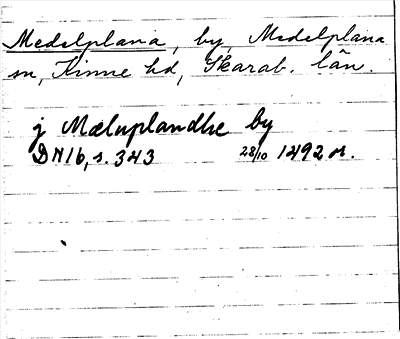 Medelplana, by, Medelplana
sn, Kinne hd, Skarab. län.
j Mæluplandhe by
DN16, s. 343 28/10 1492 or.